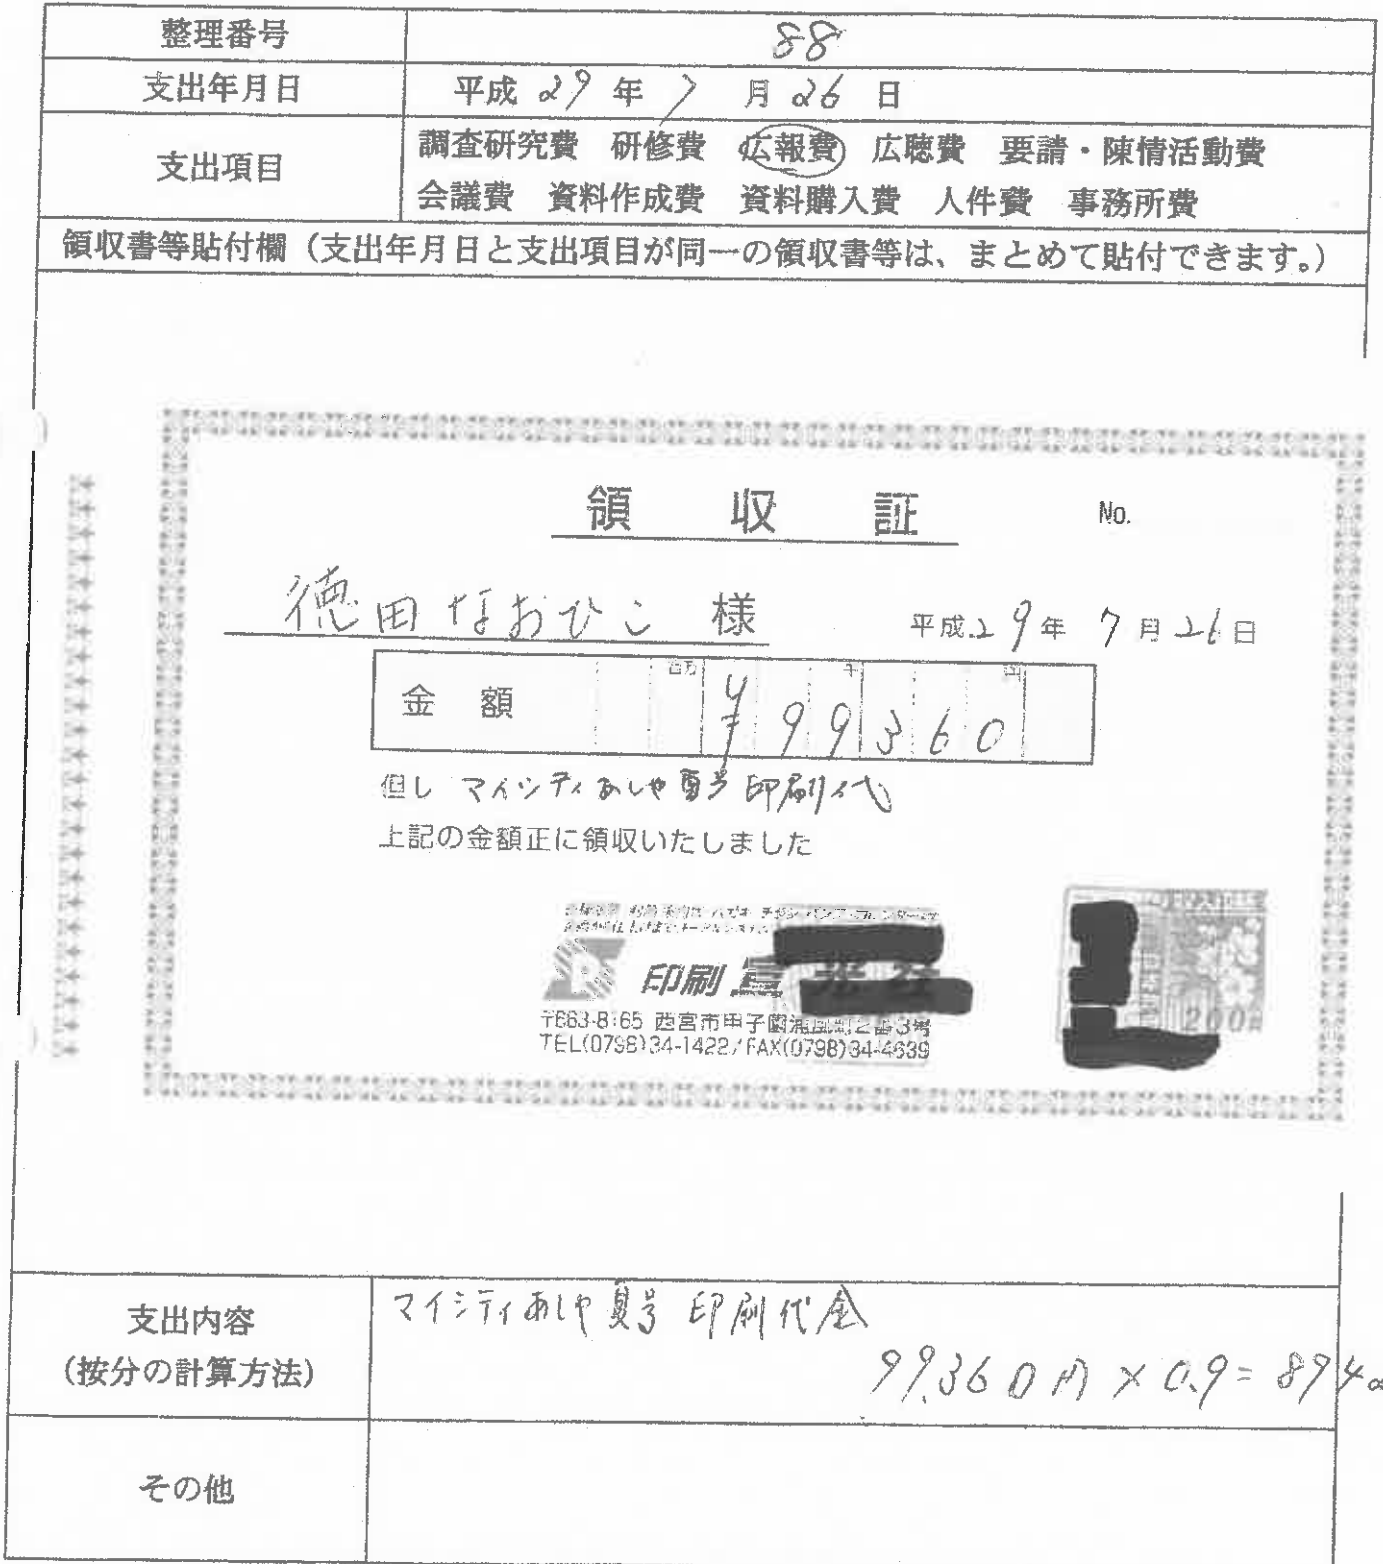 整理番号 88
支出年月日 平成 29 年 7 月 26 日
支出項目 調査研究費 研修費 広報費 広聴費 要請・陳情活動費
会議費 資料作成費 資料購入費 人件費 事務所費
領収書等貼付欄（支出年月日と支出項目が同一の領収書等は、まとめて貼付できます。）
領収証 No.
徳田なおひこ 様 平成29年7月26日
金額 百万 千 円 ¥99360
但し マイシティあしや夏号 印刷代
上記の金額正に領収いたしました
印刷
〒663-8165 西宮市甲子園浦風町2番3号
TEL(0798)34-1422/FAX(0798)34-4639
200円
支出内容 マイシティあしや夏号 印刷代金
(按分の計算方法) 99,360円×0.9=894
その他